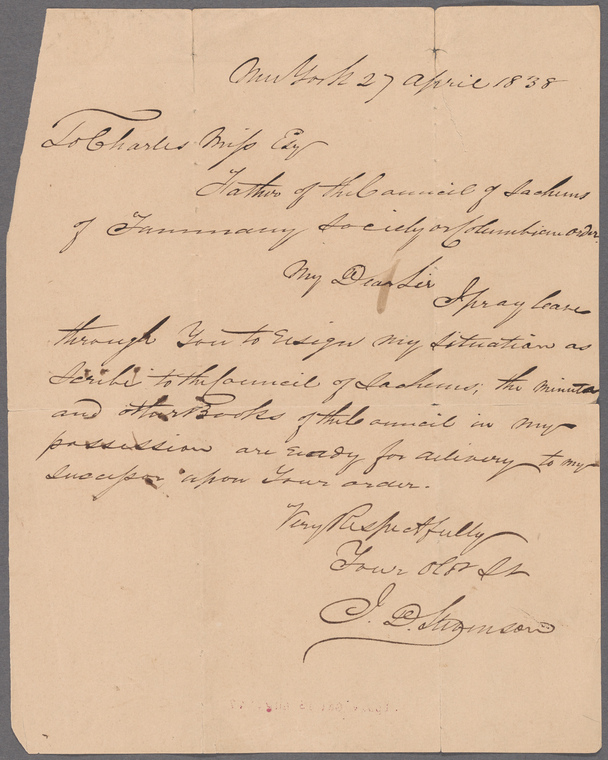 New York 27 April 1838
To Charles Miss Esq
Father of the Council of Sachems
of Tammany Society or Columbian order.
My Dear Sir
I pray leave
through You to resign my situation as
Scribe to the Council of Sachems; the minutes
and other Books of the Council in my
possession are ready for delivery to my
successor upon Your order.
Very Respectfully
Your Obt St
J. D. Stevenson